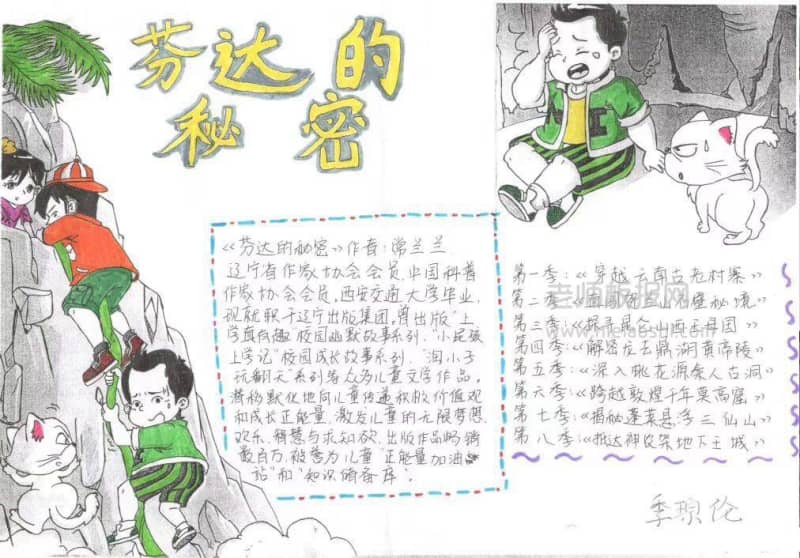 芬达的
秘密
《芬达的秘密》作者:常兰兰.
辽宁省作家协会会员,中国科普
作家协会会员,西安交通大学毕业,
现就职于辽宁出版集团,曾出版"上
学真有趣"校园幽默故事系列,"小屁孩
上学记"校园成长故事系列,"淘小子
玩翻天"系列等众为儿童文学作品。
潜移默化地向儿童传递积极价值观
和成长正能量,激发儿童的无限梦想
欢乐,智慧与求知欲,出版作品畅销
数百万,被誉为儿童"正能量加油
站"和"知识储备库"。
第一季:《穿越云南古老村寨》
第二季:
第三季:
第四季:《解密龙古鼎湖黄帝陵》
第五季:《深入桃花源秦人古洞》
第六季:《跨越敦煌千年莫高窟》
第七季:《揭秘蓬莱悬浮三仙山》
第八季:《抵达神农架地下王城》
老师板报网